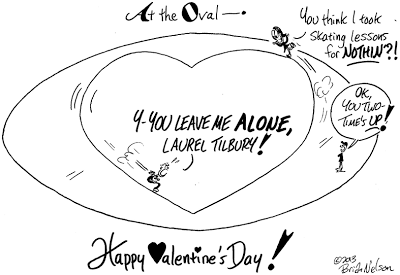 At the Oval—.
You think I took
Skating lessons
for NOTHIN'?!
Y-YOU LEAVE ME ALONE,
LAUREL TILBURY!
OK,
YOU TWO-
TIME'S UP!
Happy Valentine's Day!
©2013
Brian Nelson